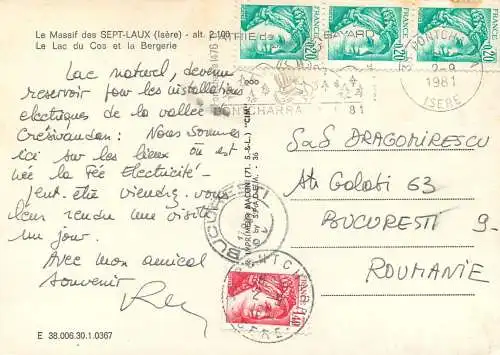 Le Massif des SEPT-LAUX (Isère) - alt. 2.100
Le Lac du Cos et la Bergerie
Lac naturel, devenu
reservoir pour les installations
electriques de la vallée
Grésivaudan: Nous sommes
ici sur les lieux où est
née la Fée Electricité.
Peut-être viendrez-vous
leur rendre une visite
un jour.
Avec mon amical
souvenir
E 38.006.30.1.0367
IMPRIMEUR MACON (71. S.&L.) "CIM"
by S.P.A.D.E.M. - 36
FRANCE 0,20
FRANCE 0,20
FRANCE 0,20
PATRIE de BAYARD
1476
PONTCHARRA
81
PONTCHA
2-9
1981
ISERE
SaS DRAGOMIRESCU
Str Galati 63
BUCURESTI 9
ROUMANIE
BUCURESTI
FRANCE 1,40